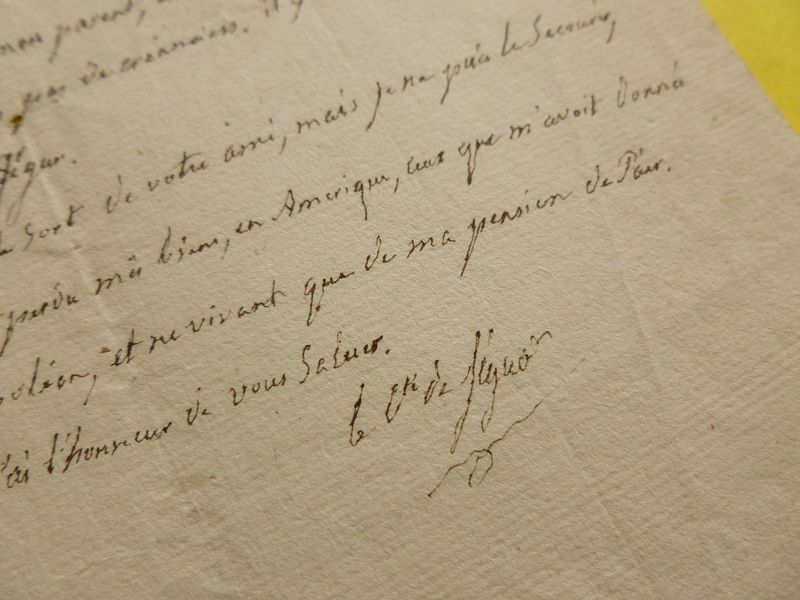 mon parent,
pas de créanciers. il y
Ségur.
sort de votre ami, mais je ne puis le secourir,
perdu mes biens, en Amerique, ceux que m'avoit donné
oléon, et ne vivant que de ma pension de Pair.
j'ai l'honneur de vous saluer.
le cte de Ségur